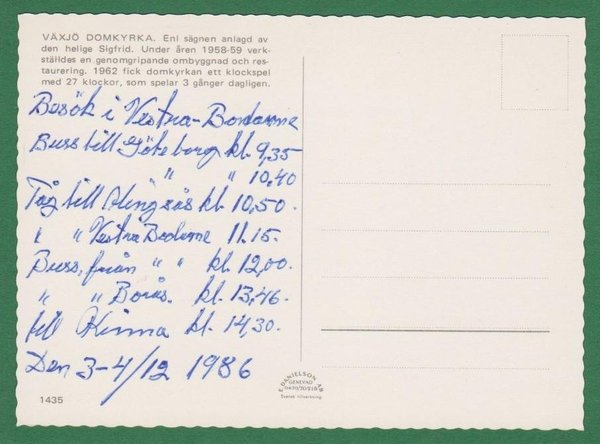 VÄXJÖ DOMKYRKA. Enl sägnen anlagd av
den helige Sigfrid. Under åren 1958-59 verk-
ställdes en genomgripande ombyggnad och res-
taurering. 1962 fick domkyrkan ett klockspel
med 27 klockor, som spelar 3 gånger dagligen.
Besök i Vestra-Bodarne
Buss till Göteborg kl. 9,35
" " 10.40
Tåg till Alingsås kl. 10,50.
" Vestra Bodarne 11.15.
Buss, från " " kl. 12,00.
" " Borås. kl. 13,46.
till Kinna kl. 14,30.
Den 3-4/12 1986
1435
E. DANIELSON AB
GENEVAD
Svensk tillverkning